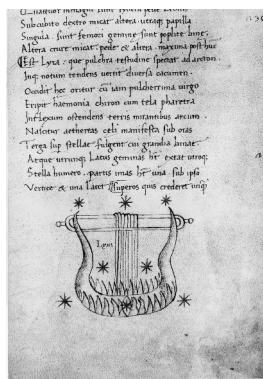 Sub cubito dextro micat altera. utraq; papilla
Singula. sunt femori gemine sunt poplite bine.
Altera crure micat. pede & altera. maxima post hec
Est Lyra. que pulchra testudine spectat ad arcton.
Inq; notum tendens uertit diuersa cacumen.
Occidit hec oritur cum iam pulcherrima uirgo
Eripit haemonia chiron cum tela pharetra
Inflexum ostendens terris mirantibus arcum.
Nascitur aethereas celi manifesta sub oras
Terga sup stellae fulgent cui grandia binae.
Atque utrunq; Latus geminas ht extat utroq;
Stella humero. partis imas ht una. sub ipso
Vertice & una Lacet superos quis crederet unq
Lyra